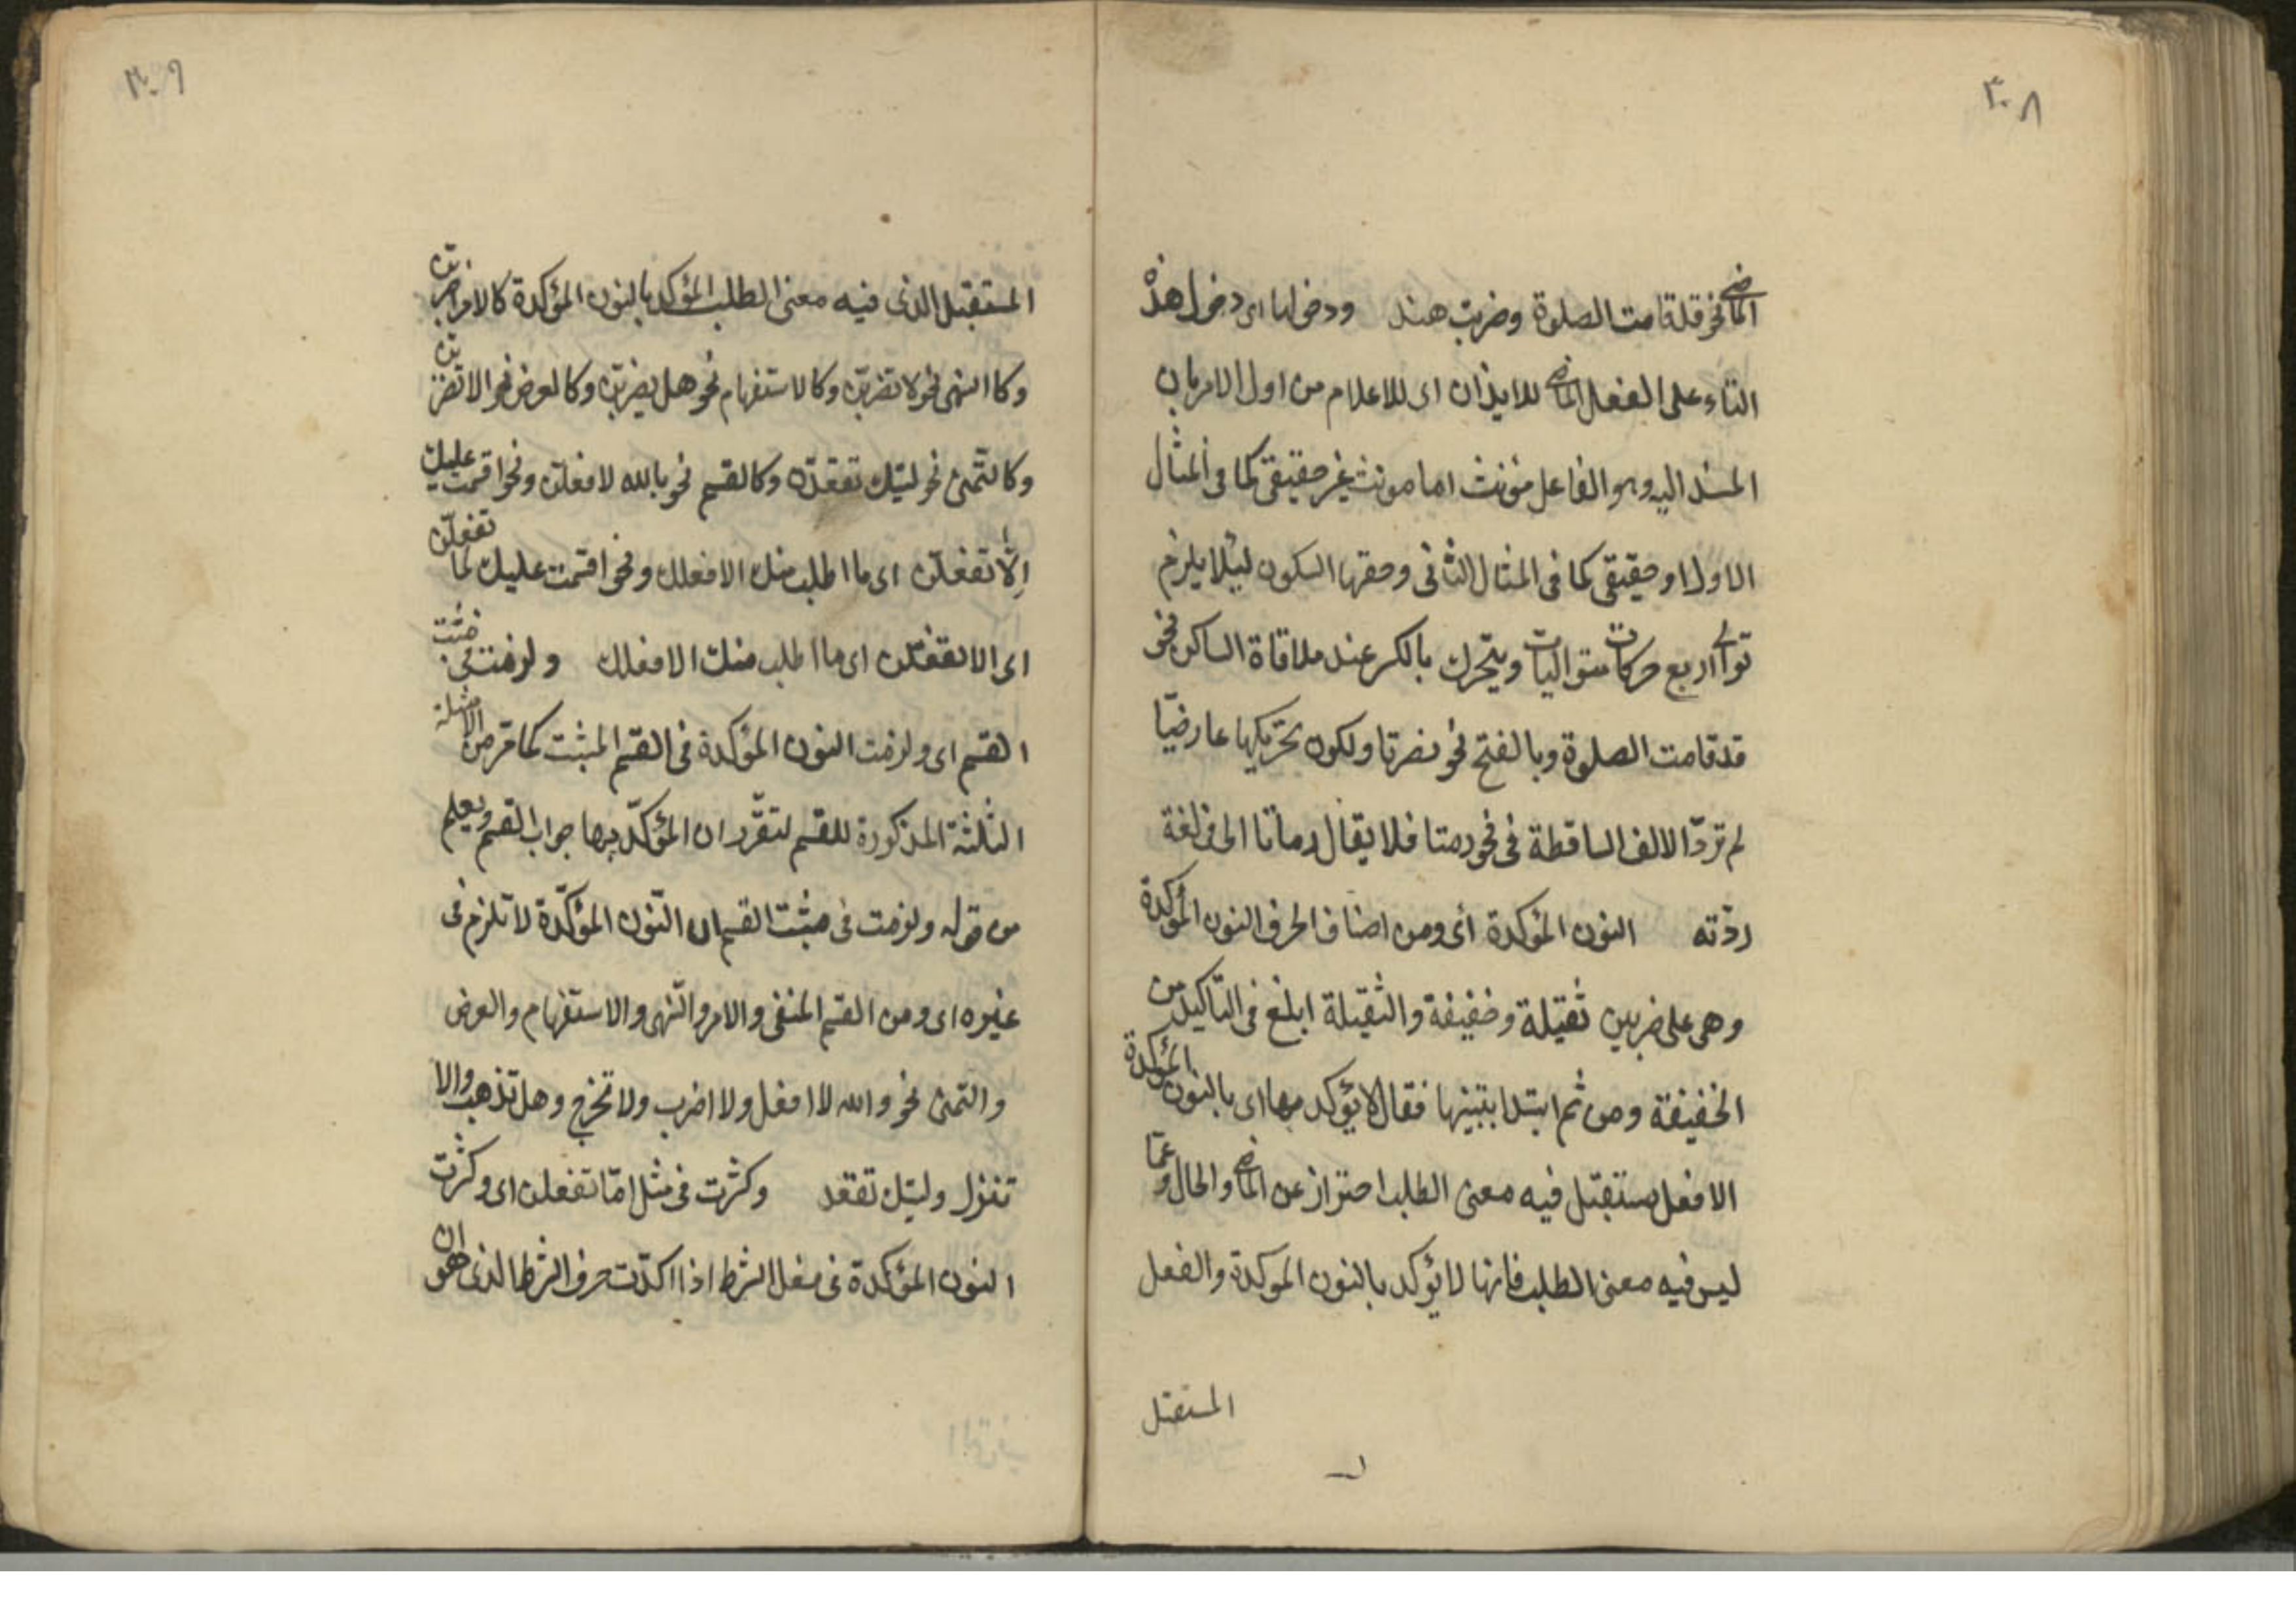 ٣٠٨
الماضي نحو قد قامت الصلوة وضربت هند ودخولها اى دخول هذه
التاء على الفعل الماضي للايذان اى للاعلام من اول الامر بان
المسند اليه وهو الفاعل مؤنث اما مونث غير حقيقى كما فى المثال
الاول او حقيقى كما فى المثال الثانى وحقها السكون ليلا يلزم
توالي اربع حركات متواليات ويتحرك بالكسر عند ملاقاة الساكن نحو
قد قامت الصلوة وبالفتح نحو نصرتا ولكون تحريكها عارضيّا
لم تردّ الالف الساقطة فى نحو رمتا فلا يقال رماتا الا فى لغة
رديّه النون المؤكدة اى ومن اصناف الحرف النون المؤكدة
وهى على ضربين ثقيلة وخفيفة والثقيلة ابلغ فى التاكيد من
الخفيفة ومن ثم ابتدا بتبينها فقال لا يؤكد بها اى بالنون المؤكدة
الا فعل مستقبل فيه معنى الطلب احتراز عن الماضي والحال وعمّا
ليس فيه معنى الطلب فانها لا يؤكد بالنون الموكدة والفعل
المستقبل
٣٠٩
المستقبل الذى فيه معنى الطلب المؤكد بالنون المؤكدة كالامر اضربنّ
وكالنهى نحو لا تضربنّ وكالاستفهام نحو هل يضربنّ وكالعرض نحو الا تضربنّ
وكالتّمنى نحو ليتك تقعدنّ وكالقسم نحو بالله لافعلن ونحو اقسمت عليك
اِلّا تفعلنّ اى ما اطلب منك الا فعلك ونحو اقسمت عليك لما تفعلنّ
اى الا تفعلن اى ما اطلب منك الا فعلك ولزمت فى مثبت
القسم اى ولزمت النون المؤكدة فى القسم المثبت كما مر من الامثلة
الثلثة المذكورة للقسم لتقرّر ان المؤكّد بها جواب القسم ويعلم
من قوله ولزمت فى مثبت القسم ان النّون المؤكّدة لا تلزم فى
غيره اى ومن القسم المنفى والامر والنّهى والاستفهام والعرض
والتمنى نحو والله لا افعل ولا اضرب ولا تخرج وهل تذهب والا
تنزل وليتك تقعد وكثرت فى مثل امّا تفعلن اى وكثرت
النون المؤكدة فى فعل الشرط اذا اكدّت حرف الشرط الذى هو ان